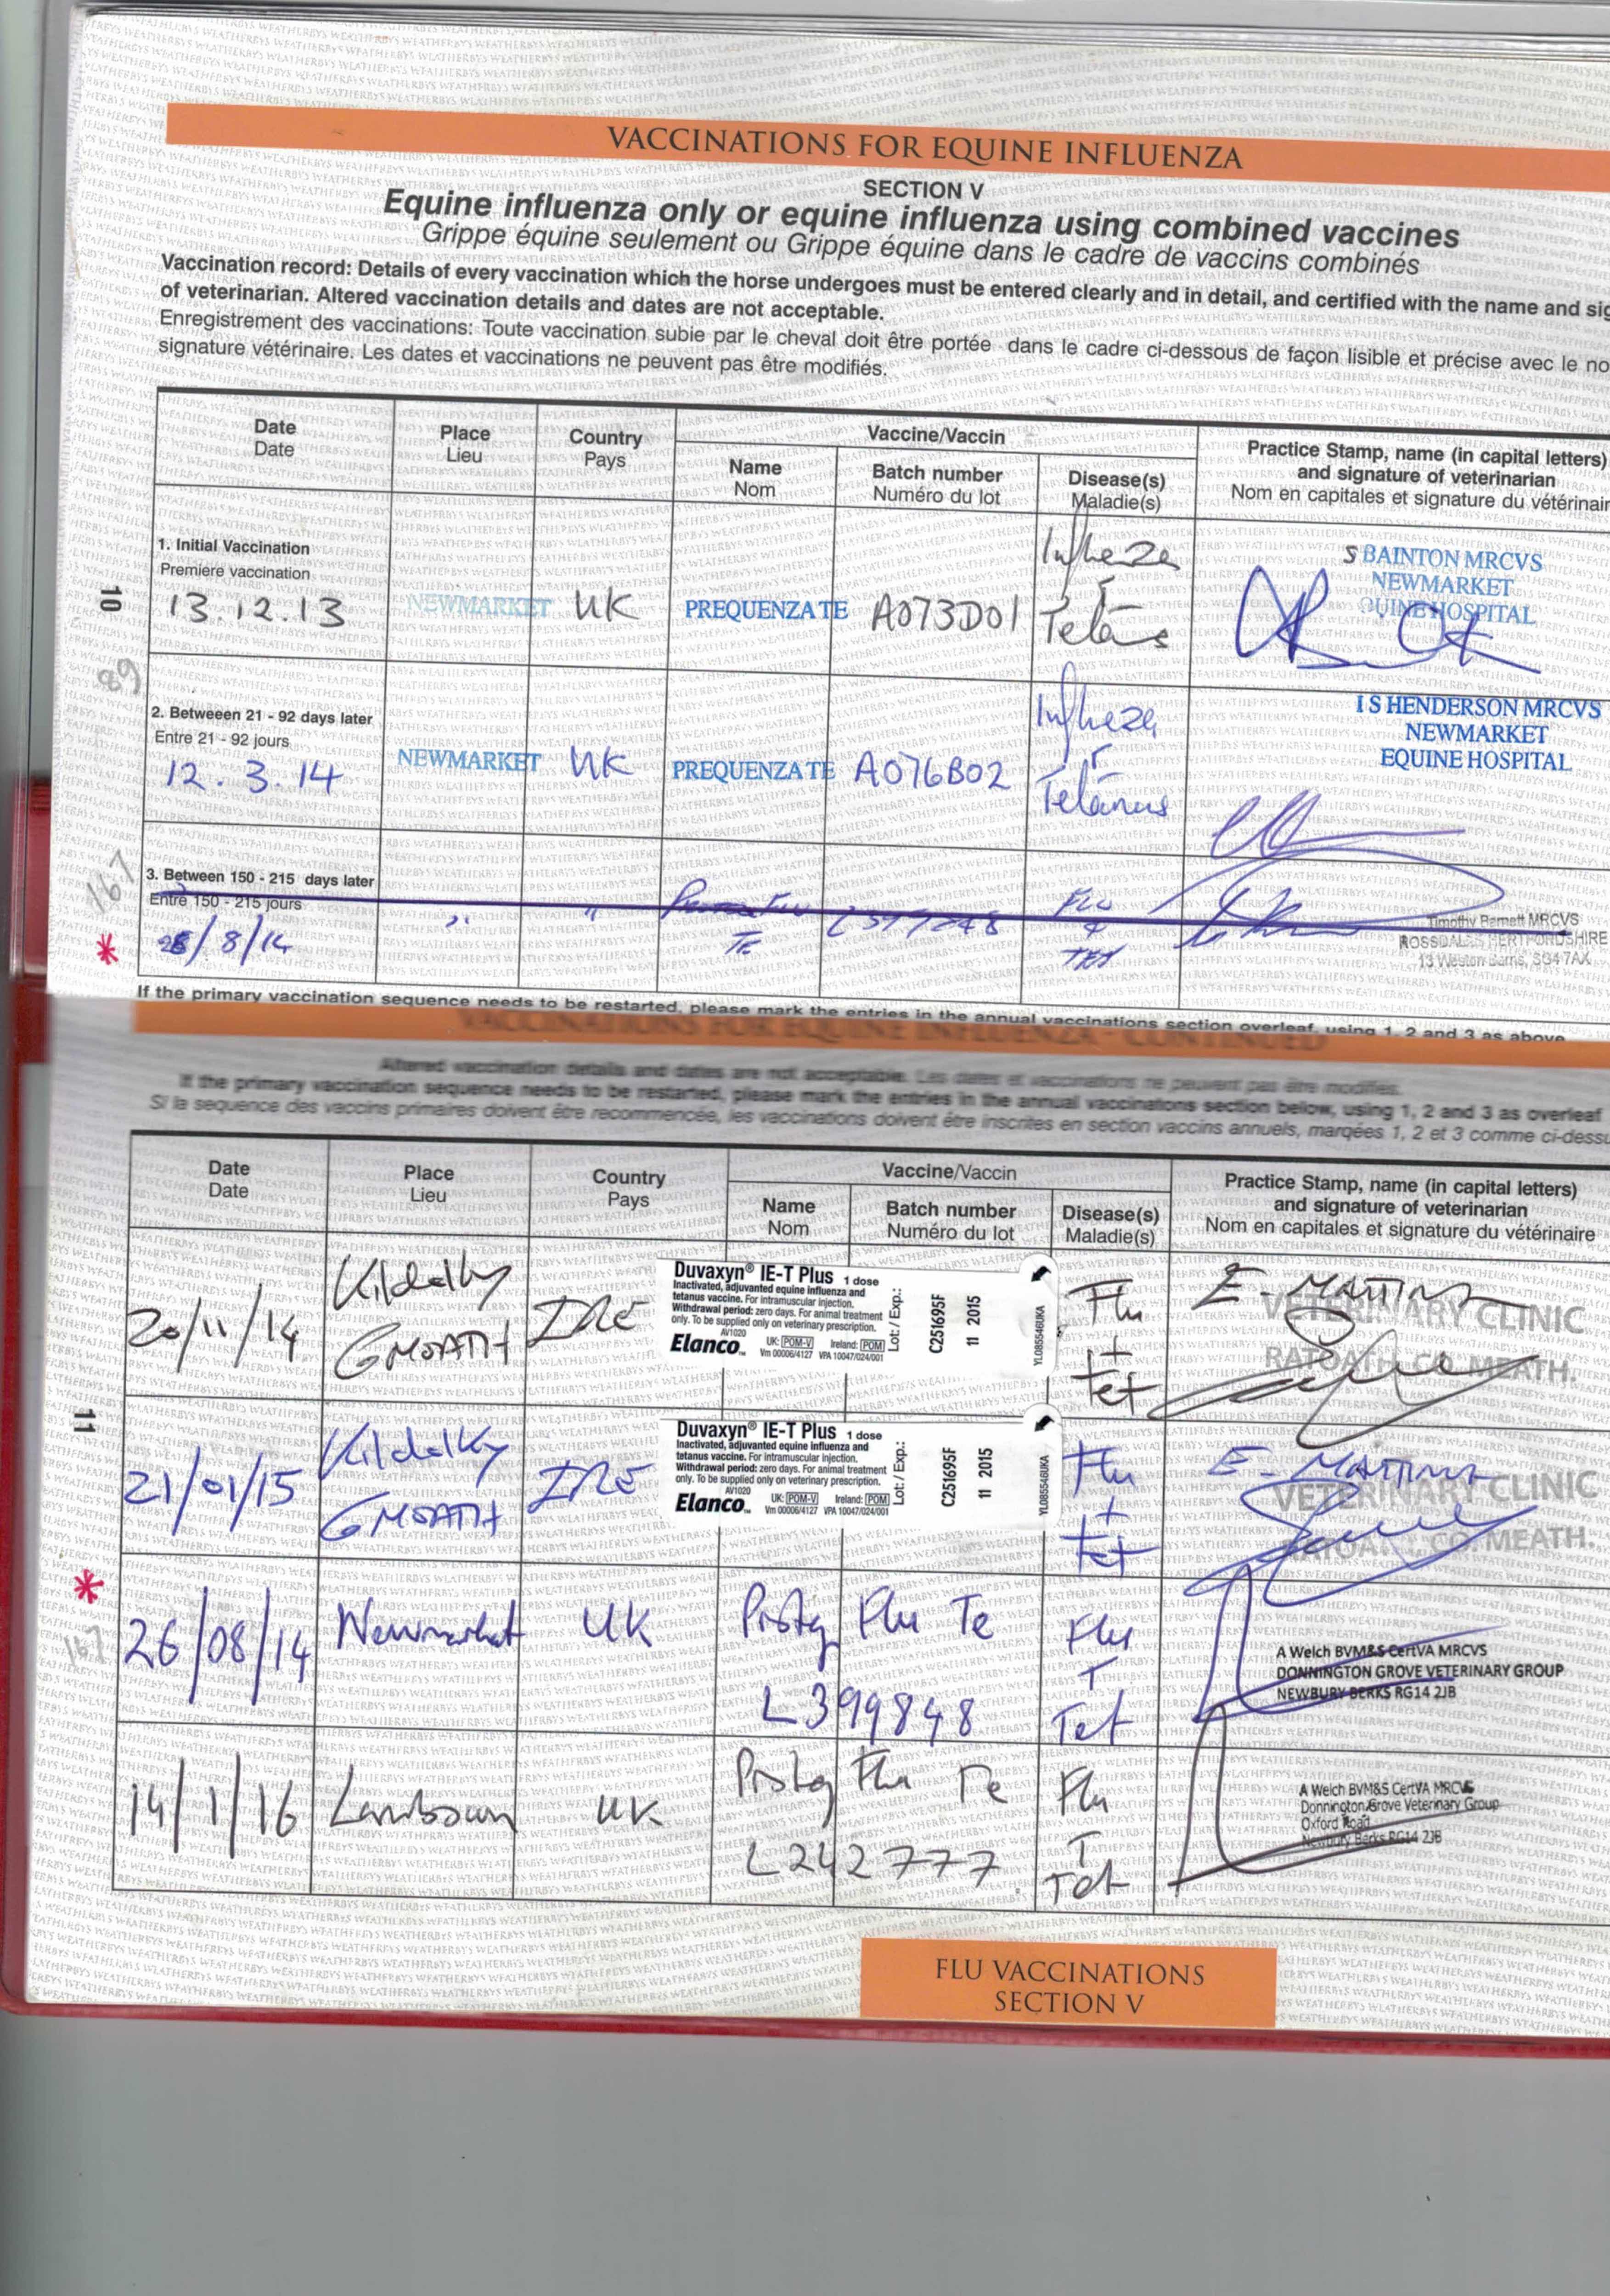 VACCINATIONS FOR EQUINE INFLUENZA
SECTION V
Equine influenza only or equine influenza using combined vaccines
Grippe équine seulement ou Grippe équine dans le cadre de vaccins combinés
Vaccination record: Details of every vaccination which the horse undergoes must be entered clearly and in detail, and certified with the name and sig
of veterinarian. Altered vaccination details and dates are not acceptable.
Enregistrement des vaccinations: Toute vaccination subie par le cheval doit être portée dans le cadre ci-dessous de façon lisible et précise avec le no
signature vétérinaire. Les dates et vaccinations ne peuvent pas être modifiés.
Date
Date
Place
Lieu
Country
Pays
Vaccine/Vaccin
Name
Nom
Batch number
Numéro du lot
Disease(s)
Maladie(s)
Practice Stamp, name (in capital letters)
and signature of veterinarian
Nom en capitales et signature du vétérinair
10
1. Initial Vaccination
Premiere vaccination
13.12.13
NEWMARKET
UK
PREQUENZA TE
A073D01
S BAINTON MRCVS
NEWMARKET
QUINE HOSPITAL
89
2. Betweeen 21 - 92 days later
Entre 21 - 92 jours
12.3.14
NEWMARKET
UK
PREQUENZA TE
A076B02
Tetanus
I S HENDERSON MRCVS
NEWMARKET
EQUINE HOSPITAL
167
3. Between 150 - 215 days later
Entre 150 - 215 jours
* /8/14
"
"
Te
Flu
+
Tet
Timothy Barnett MRCVS
ROSSDALES HERTFORDSHIRE
13 Weston Barns, SG4 7AX
If the primary vaccination sequence needs to be restarted, please mark the entries in the annual vaccinations section overleaf, using 1, 2 and 3 as above
VACCINATIONS FOR EQUINE INFLUENZA - CONTINUED
Altered vaccination details and dates are not acceptable. Les dates et vaccinations ne peuvent pas être modifies.
If the primary vaccination sequence needs to be restarted, please mark the entries in the annual vaccinations section below, using 1, 2 and 3 as overleaf
Si la sequence des vaccins primaires doivent être recommencée, les vaccinations doivent être inscrites en section vaccins annuels, marqées 1, 2 et 3 comme ci-dessu
Date
Date
Place
Lieu
Country
Pays
Vaccine/Vaccin
Name
Nom
Batch number
Numéro du lot
Disease(s)
Maladie(s)
Practice Stamp, name (in capital letters)
and signature of veterinarian
Nom en capitales et signature du vétérinaire
11
20/11/14
Kildalky
IRE
Duvaxyn® IE-T Plus 1 dose
Inactivated, adjuvanted equine influenza and
tetanus vaccine. For intramuscular injection.
Withdrawal period: zero days. For animal treatment
only. To be supplied only on veterinary prescription.
AV1020
Elanco™ UK: POM-V Ireland: POM
Vm 00006/4127 VPA 10047/024/001
Lot: / Exp.:
C251695F
11 2015
YL085546UKA
Flu
+
Tet
E. MARTINA
VETERINARY CLINIC
RATOATH, CO. MEATH.
21/01/15
Kildalky
IRE
Duvaxyn® IE-T Plus 1 dose
Inactivated, adjuvanted equine influenza and
tetanus vaccine. For intramuscular injection.
Withdrawal period: zero days. For animal treatment
only. To be supplied only on veterinary prescription.
AV1020
Elanco™ UK: POM-V Ireland: POM
Vm 00006/4127 VPA 10047/024/001
Lot: / Exp.:
C251695F
11 2015
YL085546UKA
Flu
+
Tet
E. MARTINA
VETERINARY CLINIC
RATOATH, CO. MEATH.
*
167
26/08/14
Newmarket
UK
Flu Te
L399848
Flu
+
Tet
A Welch BVM&S CertVA MRCVS
DONNINGTON GROVE VETERINARY GROUP
NEWBURY BERKS RG14 2JB
14/1/16
Lambourn
UK
Flu Te
L242777
Flu
+
Tet
A Welch BVM&S CertVA MRCVS
Donnington Grove Veterinary Group
Oxford Road
Newbury Berks RG14 2JB
FLU VACCINATIONS
SECTION V